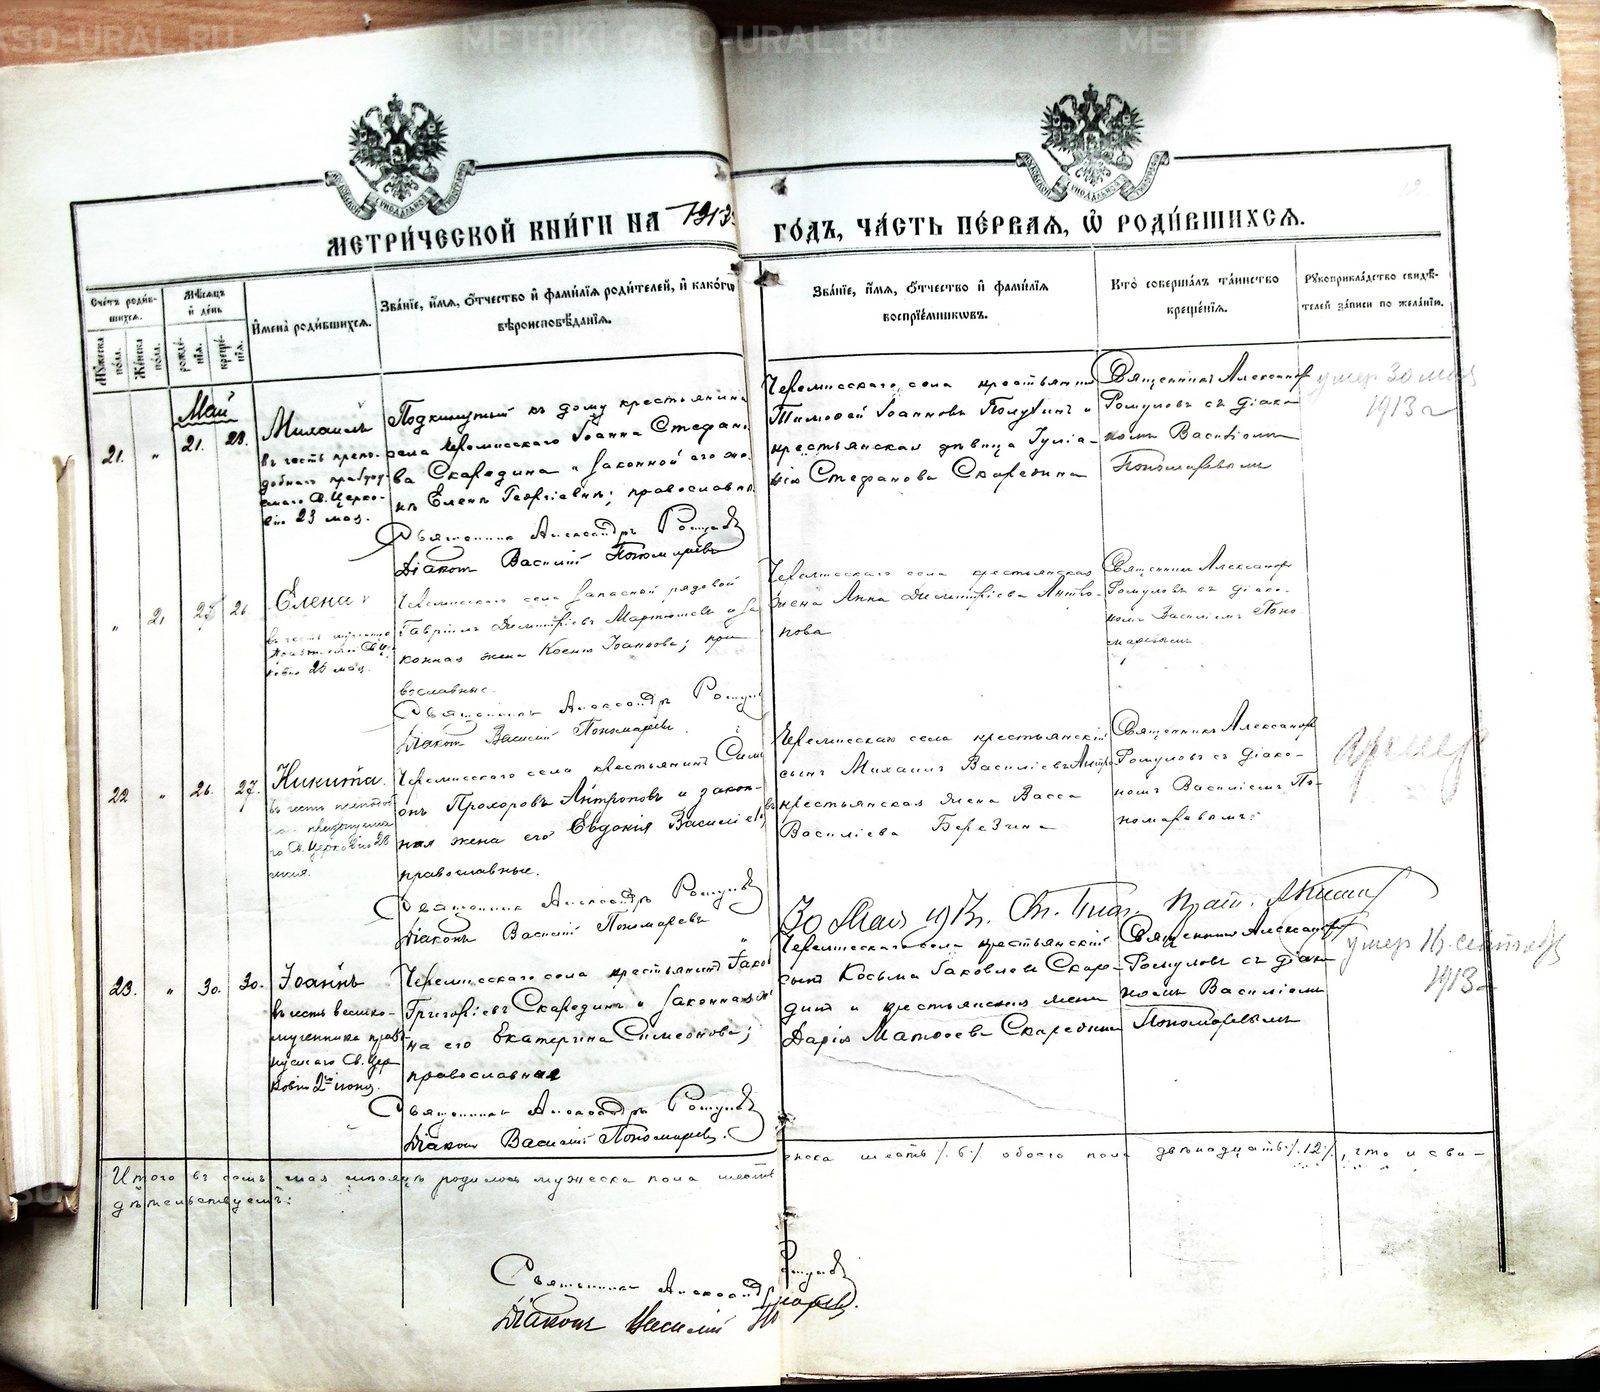 ASO-URAL.RU
METRIKI.GASO-URAL.RU
МЕТРИ́ЧЕСКОЙ КНИ́ГИ НА 1913
ГО́ДЪ, ЧА́СТЬ ПЕ́РВАЯ, Ѿ РОДИ́ВШИХСЯ.
Сче́тъ роди́вшихся.
Му́жеска по́ла.
Же́нска по́ла.
Мѣ́сяцъ и́ де́нь
рожде́нїя.
креще́нїя.
И́мена̀ роди́вшихся.
Зва́нїе, и́мя, ѻ҆́тчество и́ фами́лїя роди́телей, и́ како́гѡ
вѣроисповѣ́данїя.
Зва́нїе, и́мя, ѻ҆́тчество и́ фами́лїя
воспрїе́мникѡвъ.
Кто̀ соверша́лъ та́инство
креще́нїя.
Рꙋкоприкла́дство свидѣ́-
телей за́писи по жела́нїю.
Май
21. " 21. 23.
Михаилъ
въ честь препо-
добнаго празд
емаго Св. Церко-
вію 23 мая.
Подкинутый къ дому крестьянина
села Черемисскаго Іоанна Стефано
ва Скаредина и законной его же
ны Елены Георгіевны; православн
Священникъ Александръ Ромуловъ
Діаконъ Василій Пономаревъ
Черемисскаго села крестьянинъ
Тимофей Іоанновъ Полухинъ и
крестьянская дѣвица Іуліа-
нія Стефанова Скаредина
Священникъ Александръ
Ромуловъ съ діако
номъ Василіемъ
Пономаревымъ
умер 30 мая
1913 г
" 2. 25 26
Елена
Церковію 26 мая.
Черемисскаго села запасной рядовой
Гавріилъ Димитріевъ Мартюшевъ и за
конная жена Ксенія Іоаннова; пра
вославные.
Священникъ Александръ Ромулов
Діаконъ Василій Пономаревъ.
Черемисскаго села крестьянская
жена Анна Димитріева Антро-
пова
Священникъ Александръ
Ромуловъ съ діако-
номъ Василіемъ Поно
маревымъ
22 " 26. 27.
Никита.
въ честь преподоб
го Св. Церковію 28
мая.
Черемисскаго села крестьянинъ Сим
онъ Прохоровъ Антроповъ и закон-
ная жена его Евдокія Василіева
православные.
Священникъ Александръ Ромуловъ
Діаконъ Василій Пономаревъ
Черемисскаго села крестьянскій
сынъ Михаилъ Василіевъ Антро
крестьянская жена Васса
Василіева Березина
Священникъ Александръ
Ромуловъ съ діако-
номъ Василіемъ По-
номаревымъ.
30 Мая 1913 г.
23. " 30. 30.
Іоаннъ
въ честь велико-
мученика празд
нуемаго Св. Цер
ковію 2го іюня.
Черемисскаго села крестьянинъ Іаков
Григорьевъ Скарединъ и законная же
на его Екатерина Симеонова;
православная
Священникъ Александръ Ромуловъ
Діаконъ Василій Пономаревъ.
Черемисскаго села крестьянскій
сынъ Косьма Іаковлевъ Скаре-
динъ и крестьянская жена
Дарія Матѳеева Скаредина
Священникъ Александръ
Ромуловъ съ діако
номъ Василіемъ
Пономаревымъ
умер 16 сентября
1913 г
Итого въ семъ мая мѣсяцѣ родилось мужеска пола шесть
женска шесть /.6./ обоего пола двѣнадцать /.12./, что и сви-
дѣтельствуемъ:
Священникъ Александръ Ромуловъ
Діаконъ Василій Пономаревъ.